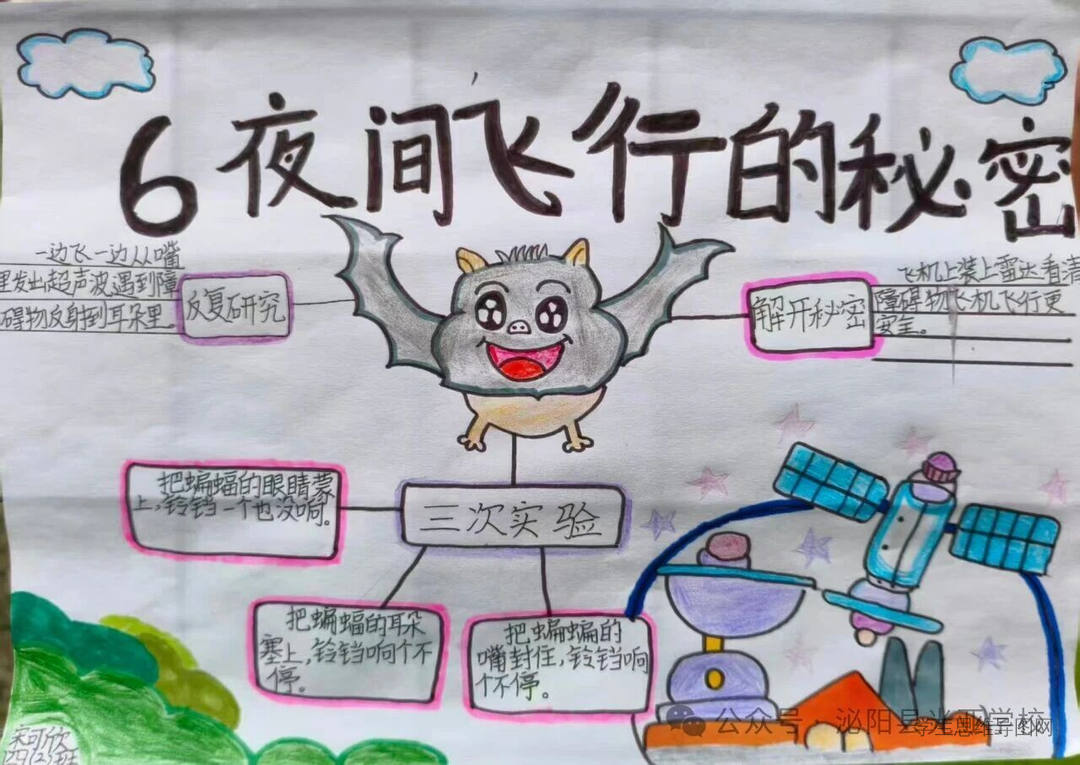 6 夜间飞行的秘密
一边飞一边从嘴
里发出超声波遇到障
碍物反射到耳朵里.
反复研究
解开秘密
飞机上装上雷达看清
障碍物飞机飞行更
安全。
三次实验
把蝙蝠的眼睛蒙
上,铃铛一个也没响。
把蝙蝠的耳朵
塞上,铃铛响个不
停。
把蝙蝙的
嘴封住,铃铛响
个不停。
公众号 泌阳县光亚学校
学生思维导图网
可欣
班